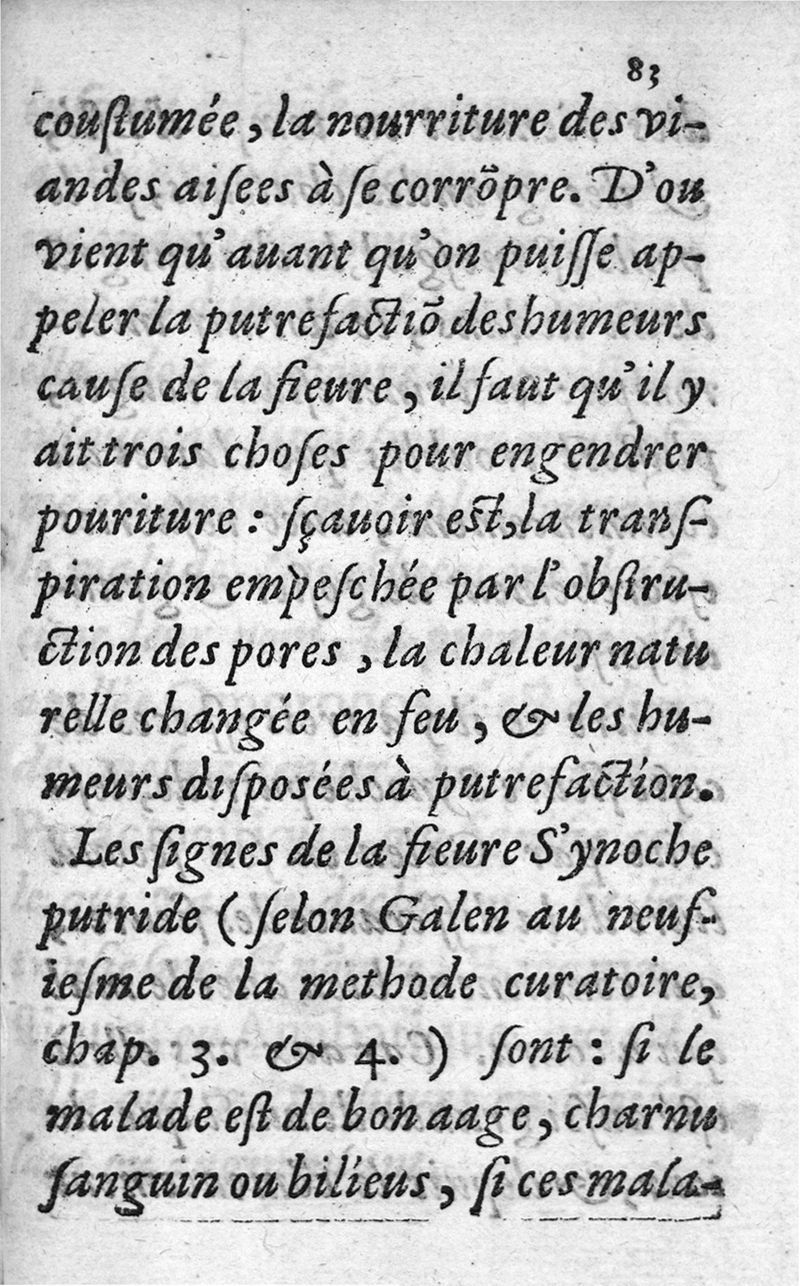 83
couſtumée, la nourriture des vi-
andes aiſees à ſe corrõpre. D'ou
vient qu'auant qu'on puiſſe ap-
peler la putrefactiõ des humeurs
cauſe de la fieure, il faut qu'il y
ait trois choſes pour engendrer
pouriture : ſçauoir eſt, la tranſ-
piration empeſchée par l'obſtru-
ction des pores, la chaleur natu
relle changée en feu, & les hu-
meurs diſposées à putrefaction.
Les ſignes de la fieure S'ynoche
putride ( ſelon Galen au neuf-
ieſme de la methode curatoire,
chap. 3. & 4. ) ſont : ſi le
malade eſt de bon aage, charnu
ſanguin ou bilieus, ſi ces mala-